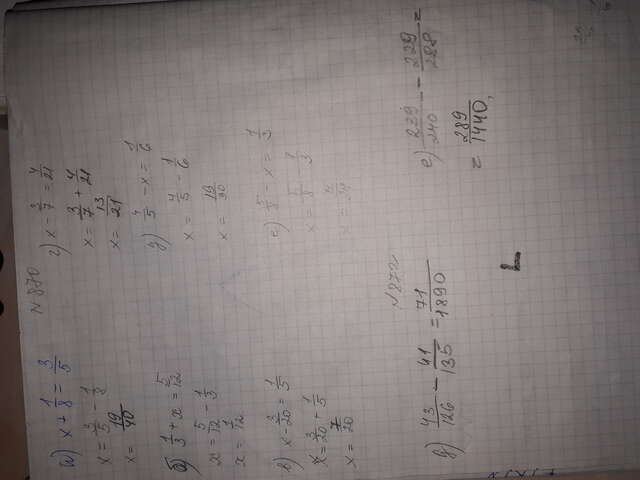 №870
а) x + 1/8 = 3/5
x = 3/5 - 1/8
x = 19/40
б) 1/3 + x = 5/12
x = 5/12 - 1/3
x = 1/12
в) x - 3/20 = 1/5
x = 3/20 + 1/5
x = 7/20
г) x - 3/7 = 4/21
x = 3/7 + 4/21
x = 13/21
д) 4/5 - x = 1/6
x = 4/5 - 1/6
x = 19/30
е) 5/8 - x = 1/3
x = 5/8 -
x =
№872
д) 43/126 - 41/135 = 71/1890
е) 239/240 - 229/288 =
= 289/1440,